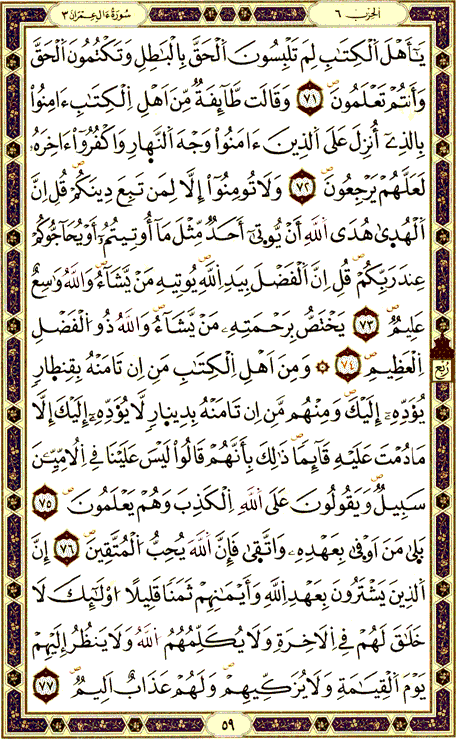 سُورَةُ ءَالِ عِمْرَانَ ٣
الحزب ٦
يَٰٓأَهْلَ اَلْكِتَٰبِ لِمَ تَلْبِسُونَ اَلْحَقَّ بِالْبَٰطِلِ وَتَكْتُمُونَ اَلْحَقَّ
وَأَنتُمْ تَعْلَمُونَۖ ٧١ وَقَالَت طَّآئِفَةٌ مِّنَ اَهْلِ اِلْكِتَٰبِ ءَامِنُواْ
بِالذِےٓ أُنزِلَ عَلَى اَلذِينَ ءَامَنُواْ وَجْهَ اَلنَّهارِ وَاكْفُرُوٓاْ ءَاخِرَهُۥ
لَعَلَّهُمْ يَرْجِعُونَۖ ٧٢ وَلَا تُومِنُوٓاْ إِلَّا لِمَن تَبِعَ دِينَكُمْۖ قُلِ اِنَّ
اَلْهُدَىٰ هُدَى اَللَّهِ أَنْ يُّوتَىٰٓ أَحَدٌ مِّثْلَ مَآ أُوتِيتُمُۥٓ أَوْ يُحَآجُّوكُمْ
عِندَ رَبِّكُمْۖ قُلِ اِنَّ اَلْفَضْلَ بِيَدِ اِللَّهِ يُوتِيهِ مَنْ يَّشَآءُۖ وَاللَّهُ وَٰسِعٌ
عَلِيمٌۖ ٧٣ يَخْتَصُّ بِرَحْمَتِهِۦ مَنْ يَّشَآءُۖ وَاللَّهُ ذُو اُلْفَضْلِ
اِلْعَظِيمِۖ ٧٤ ۞ وَمِنَ اَهْلِ اِلْكِتَٰبِ مَنِ اِن تَامَنْهُ بِقِنطارٖ
رُبُع
يُؤَدِّهِۦٓ إِلَيْكَۖ وَمِنْهُم مَّنِ اِن تَامَنْهُ بِدِينارٖ لَّا يُؤَدِّهِۦٓ إِلَيْكَ إِلَّا
مَا دُمْتَ عَلَيْهِ قَآئِماٗۖ ذَٰلِكَ بِأَنَّهُمْ قَالُواْ لَيْسَ عَلَيْنَا فِے اِلُامِّيِّـۧنَ
سَبِيلٌۖ وَيَقُولُونَ عَلَى اَللَّهِ اِلْكَذِبَ وَهُمْ يَعْلَمُونَۖ ٧٥
بَلَىٰ مَنَ اَوْفَىٰ بِعَهْدِهِۦ وَاتَّقَىٰ فَإِنَّ اَللَّهَ يُحِبُّ اُلْمُتَّقِينَۖ ٧٦ إِنَّ
اَلذِينَ يَشْتَرُونَ بِعَهْدِ اِللَّهِ وَأَيْمَٰنِهِمْ ثَمَناٗ قَلِيلاً اُوْلَٰٓئِكَ لَا
خَلَٰقَ لَهُمْ فِے اِلَاخِرَةِ وَلَا يُكَلِّمُهُمُ اُللَّهُ وَلَا يَنظُرُ إِلَيْهِمْ
يَوْمَ اَلْقِيَٰمَةِ وَلَا يُزَكِّيهِمْۖ وَلَهُمْ عَذَابٌ اَلِيمٌۖ ٧٧
٥٩